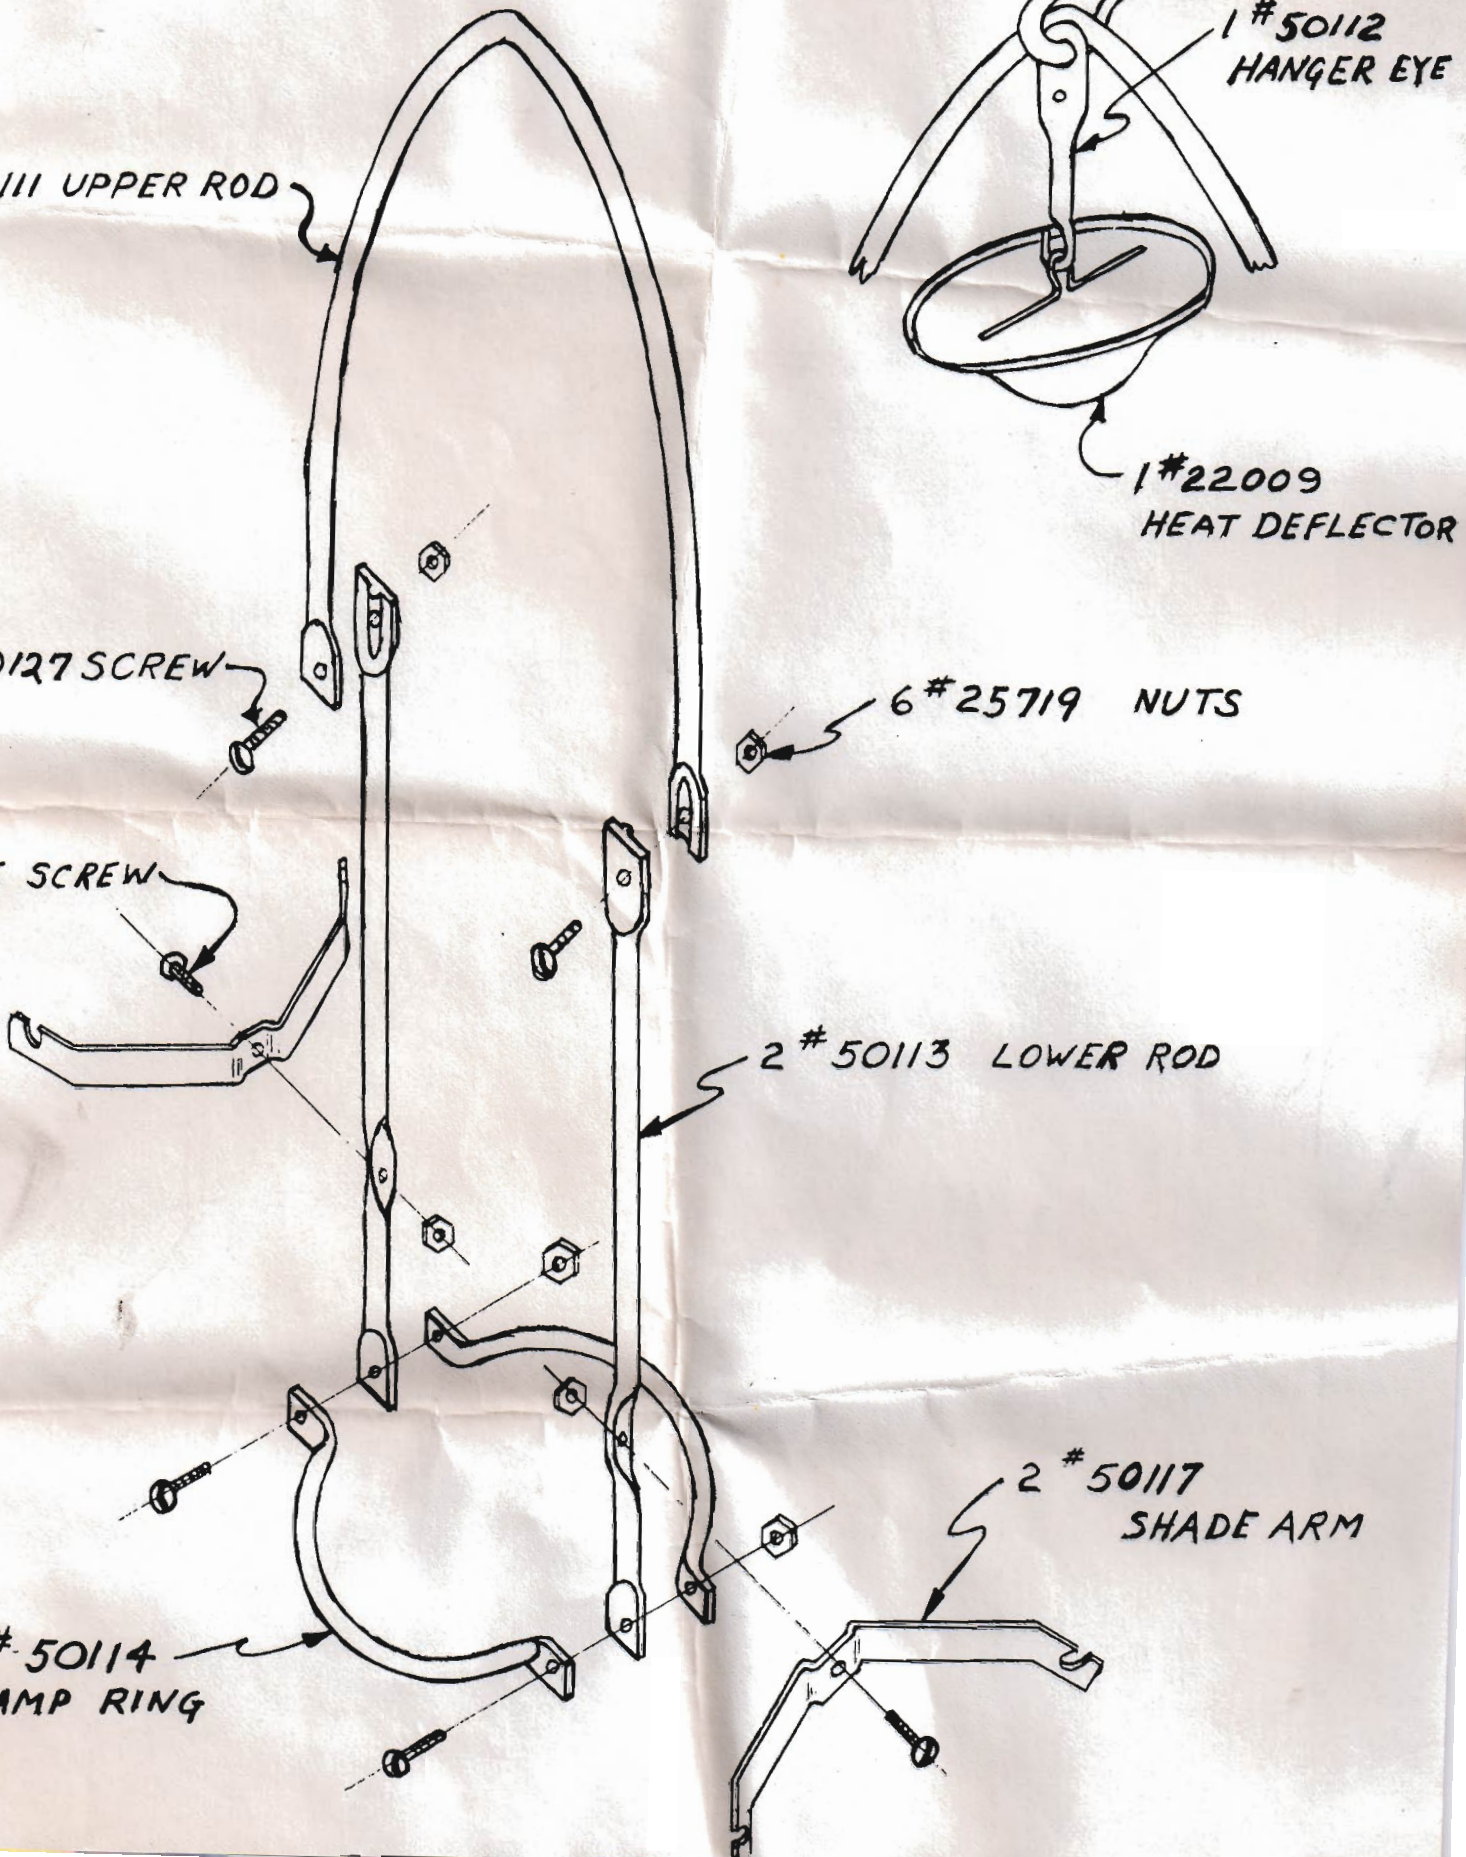 1 #50112
HANGER EYE
111 UPPER ROD
1 #22009
HEAT DEFLECTOR
0127 SCREW
6 #25719 NUTS
SCREW
2 #50113 LOWER ROD
2 #50117
SHADE ARM
# 50114
AMP RING